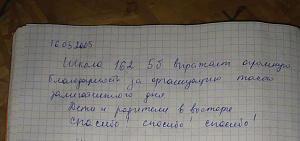 16.05.2005
Школа 162 5б выражает огромную
благодарность за организацию такого
замечательного дня
Дети и родители в восторге
Спасибо! спасибо! спасибо!